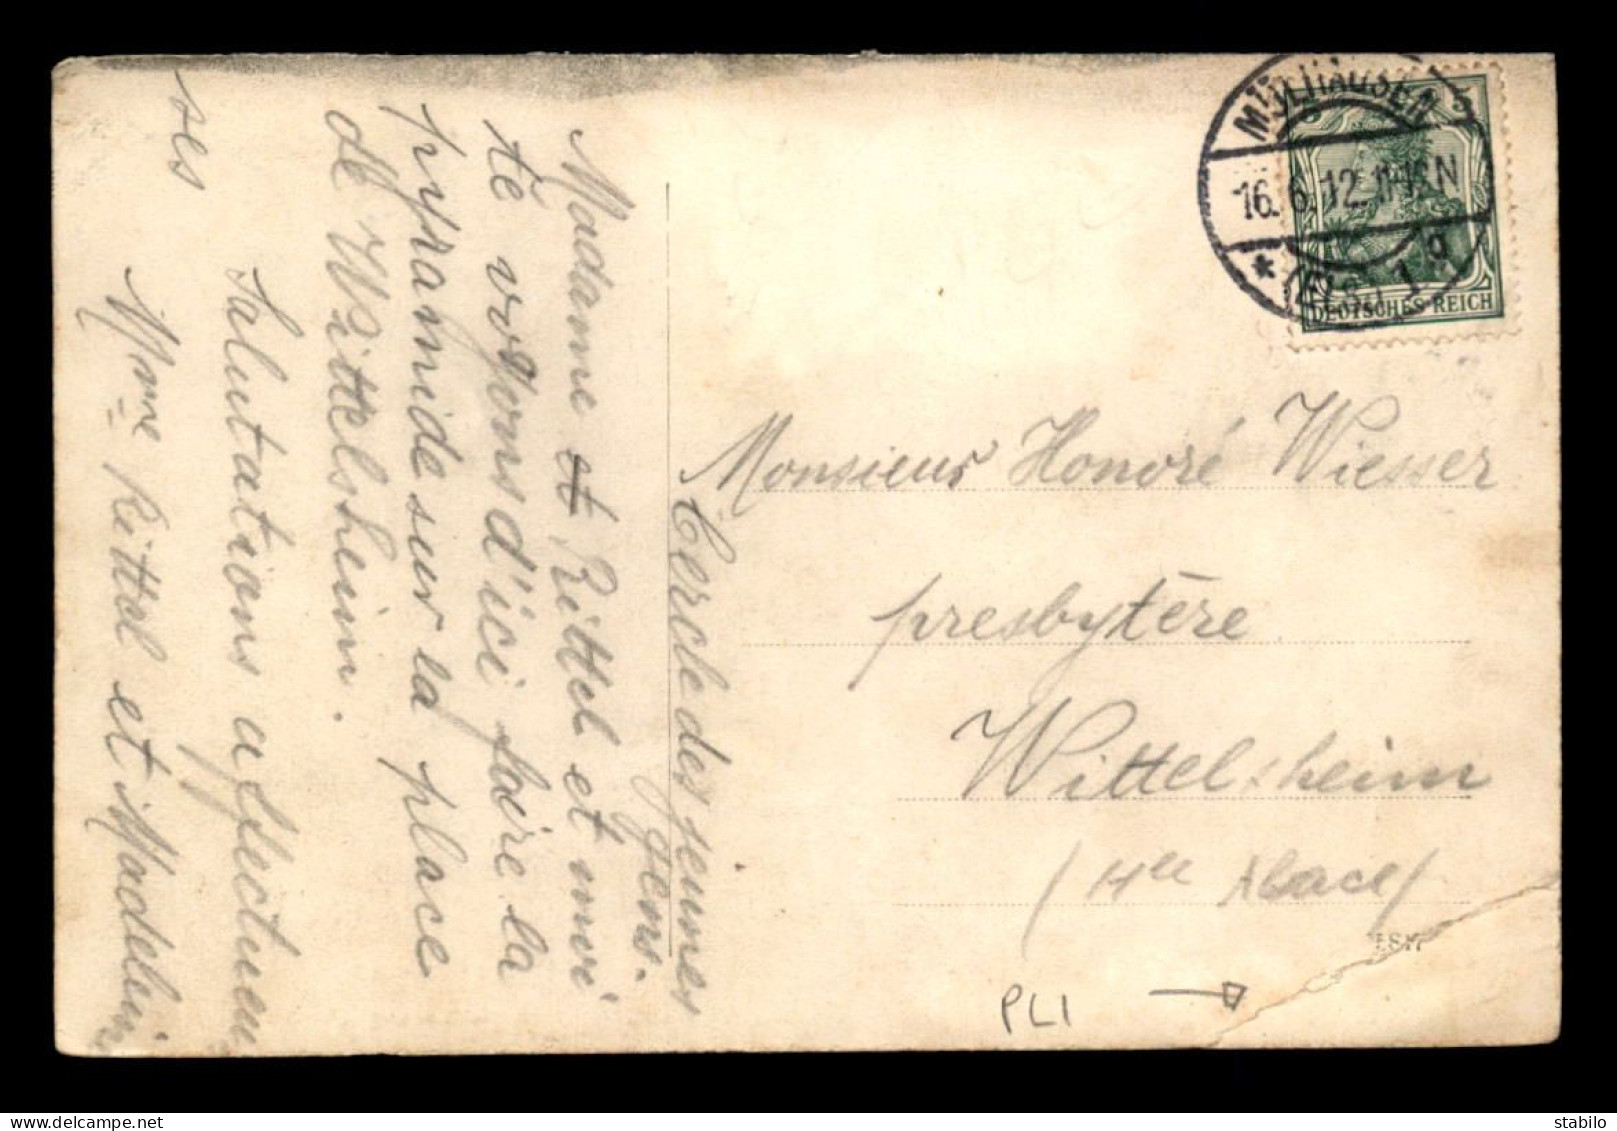 Madame et Rittel et moi
te voyons d'ici faire la
pyramide sur la place
de Wittelsheim.
Salutations affectueu
ses
Mme Rittel et Madelein
Cercle des jeunes
gens.
MÜLHAUSEN
16.6.12.11-12N
* (Els.) 1 g
5 5
DEUTSCHES REICH
Monsieur Honoré Wiesser
presbytère
Wittelsheim
(Hte Alsace)
PLI
delcampe.net
stabilo